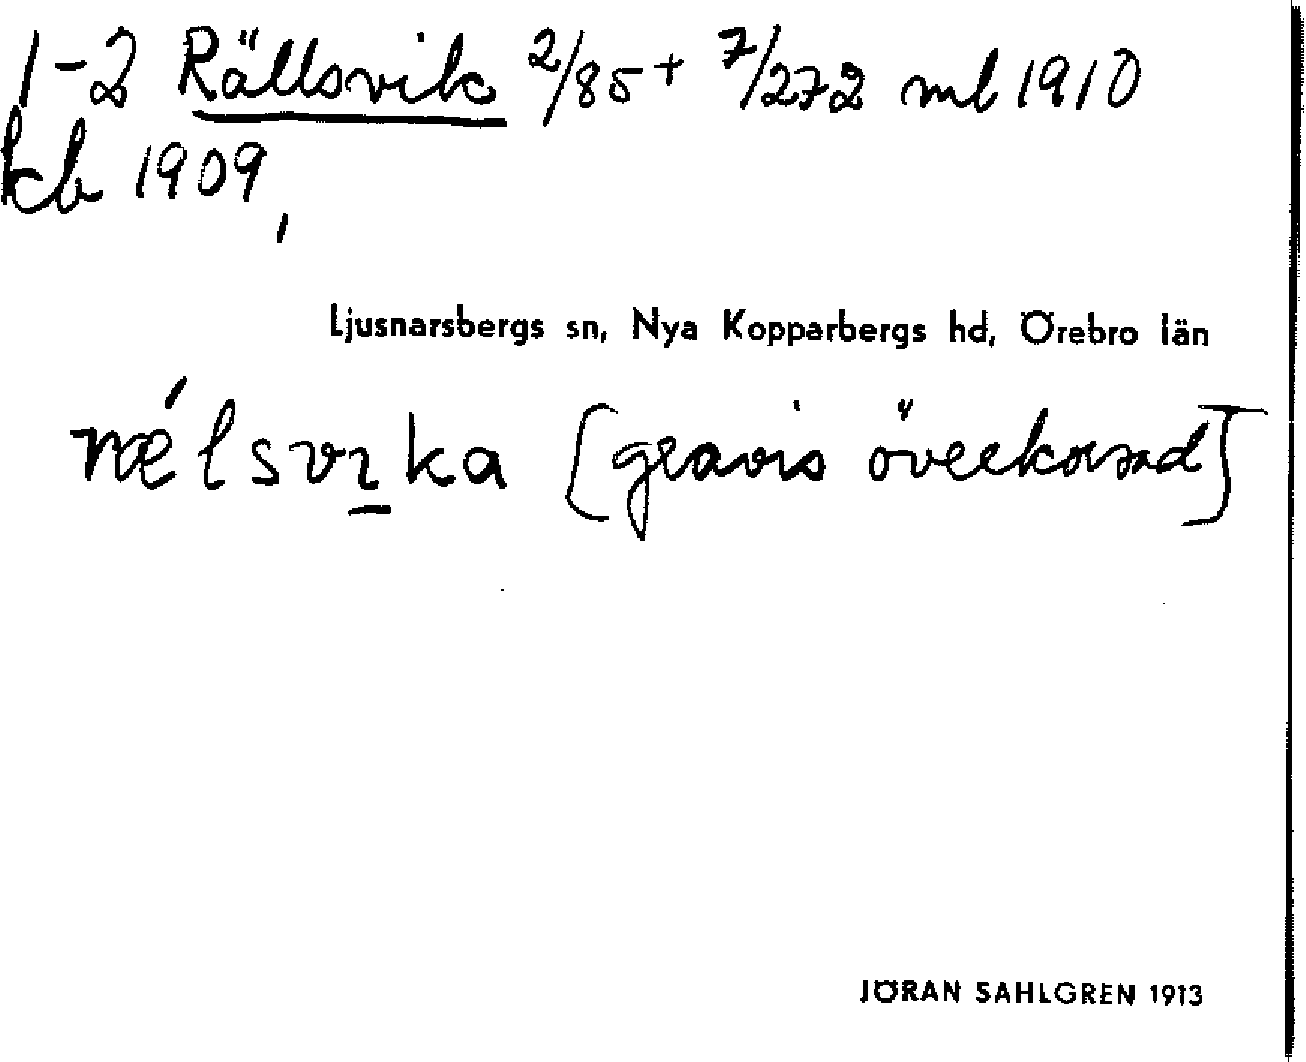 1-2 Rällsvik 2/85 + 7/272 ml 1910
kb 1909,
Ljusnarsbergs sn, Nya Kopparbergs hd, Örebro län
ræ´lsvı̲ka [gravis överkorsad]
JÖRAN SAHLGREN 1913